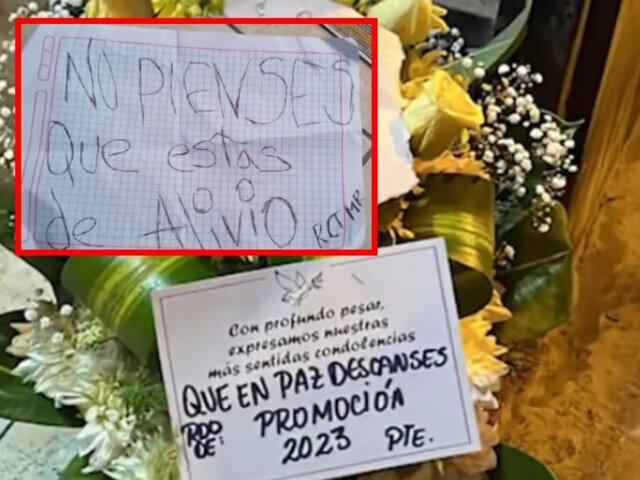 NO PIENSES
Que estas
de Alivio
RCTMR
Con profundo pesar,
expresamos nuestras
más sentidas condolencias
QUE EN PAZ DESCANSES
RDO DE: PROMOCIÓN
2023 PTE.